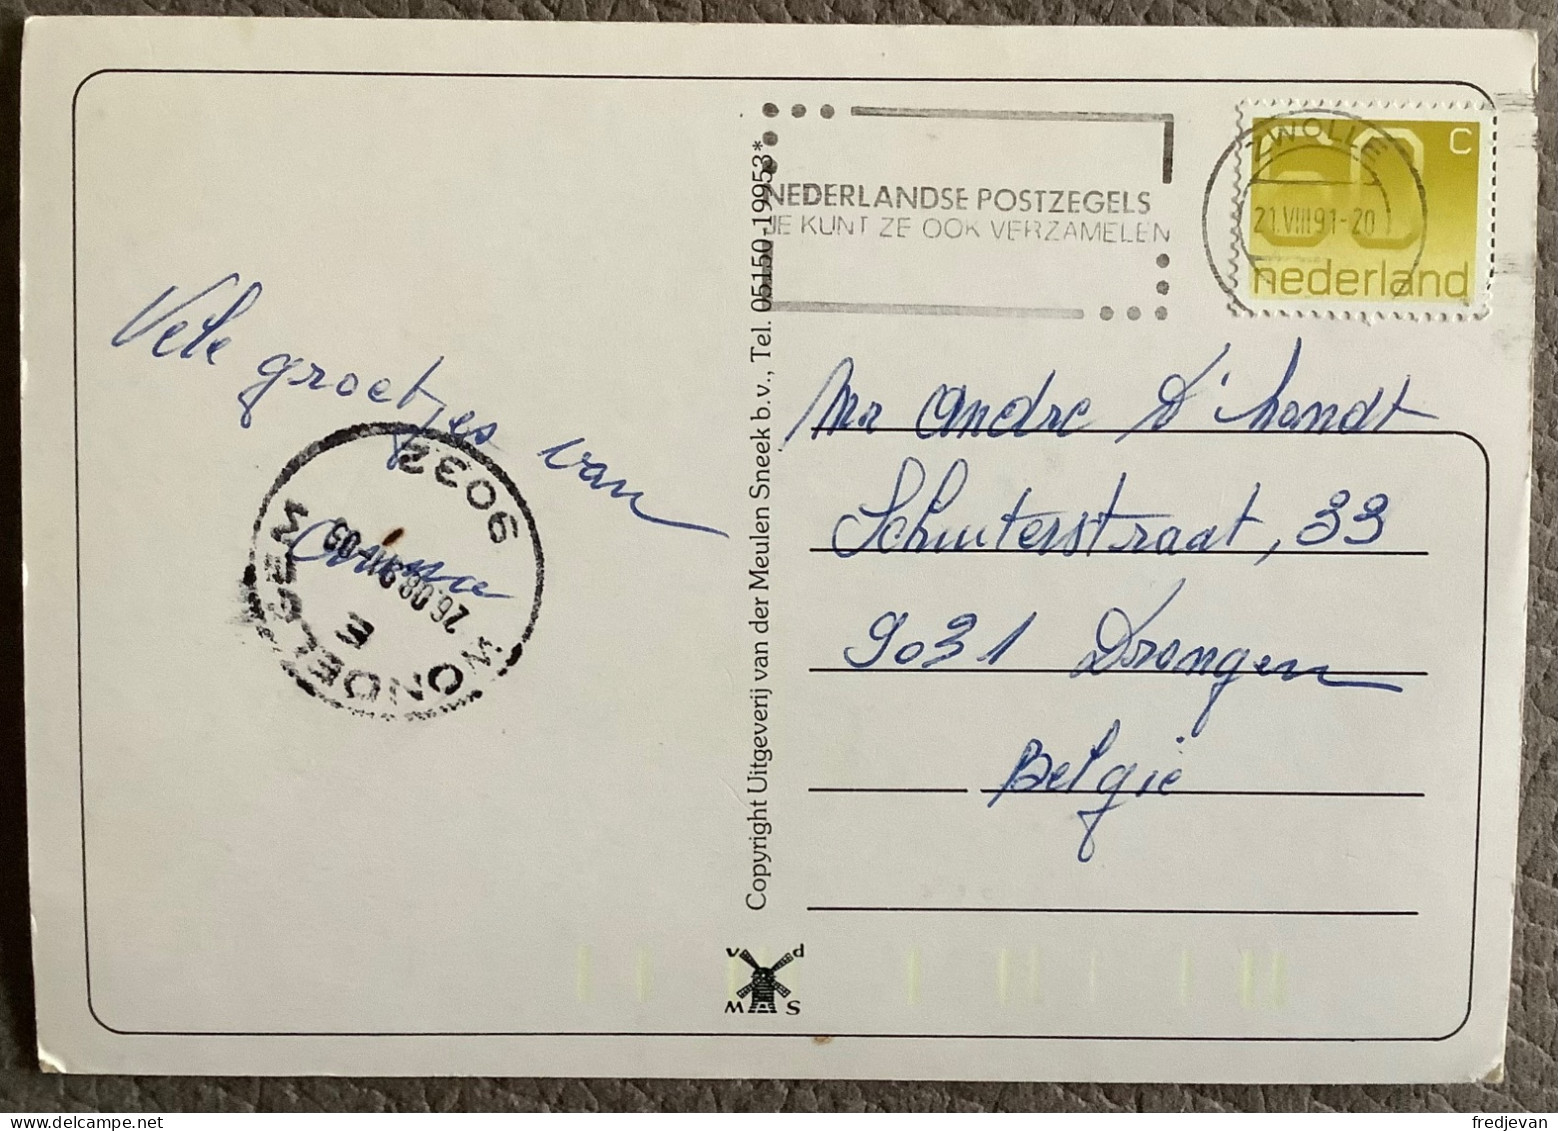 Vele groetjes van
9032
WONDELGEM
26.08.91
E
Copyright Uitgeverij van der Meulen Sneek b.v., Tel. 05150-19953*
NEDERLANDSE POSTZEGELS
JE KUNT ZE OOK VERZAMELEN
ZWOLLE
21.VIII91-20
60 C
nederland
Mr André D'hondt
Schuiterstraat, 33
9031 Drongen
België
v d
M S
fredjevan